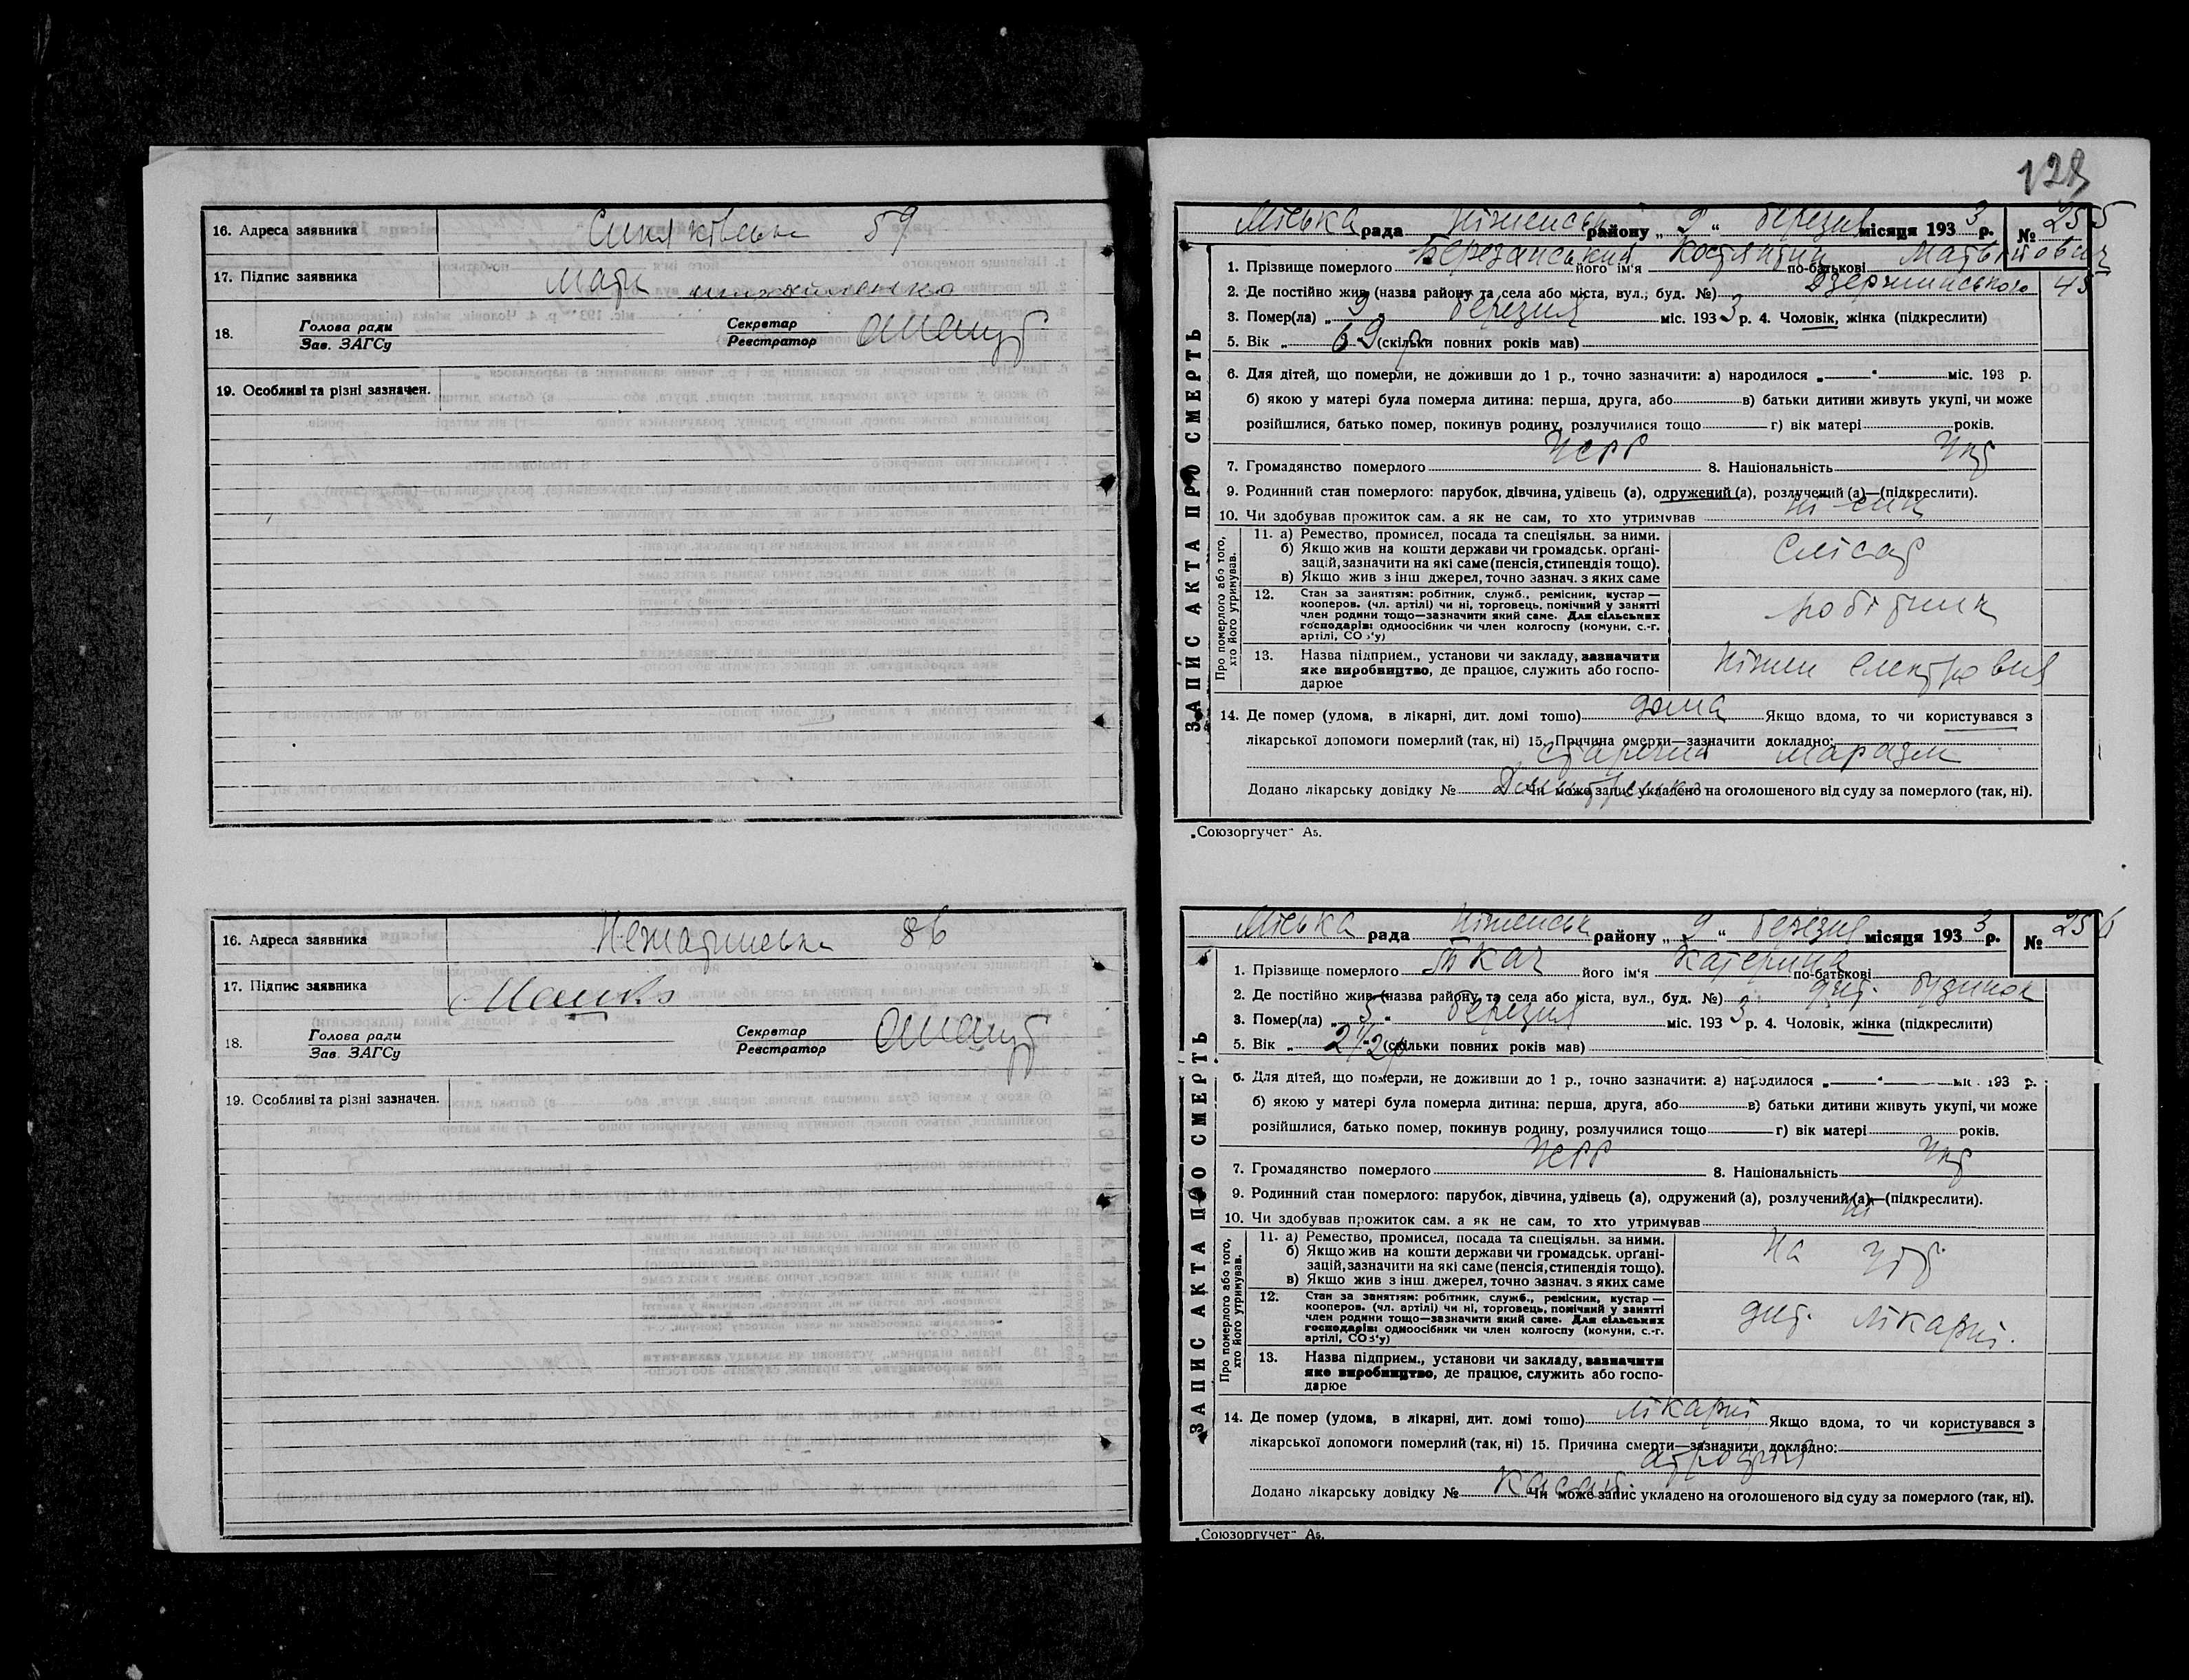 16. Адреса заявника 59
17. Підпис заявника Мати
18. Голова ради
Зав. ЗАГСу
Секретар
Реєстратор
19. Особливі та різні зазначен.
16. Адреса заявника 86
17. Підпис заявника
18. Голова ради
Зав. ЗАГСу
Секретар
Реєстратор
19. Особливі та різні зазначен.
128
ЗАПИС АКТА ПРО СМЕРТЬ
Міська рада Ніженськ району „ 9 “ березня місяця 193 3 р. № 255
1. Прізвище померлого Березанський його ім'я Костянтин по-батькові
2. Де постійно жив (назва району та села або міста, вул., буд. №) Дзержинського 45
3. Помер(ла) „ 9 „ березня міс. 193 3 р. 4. Чоловік, жінка (підкреслити)
5. Вік „ 69 р (скільки повних років мав)
6. Для дітей, що померли, не доживши до 1 р., точно зазначити: а) народилося „ “ міс. 193 р.
б) якою у матері була померла дитина: перша, друга, або в) батьки дитини живуть укупі, чи може
розійшлися, батько помер, покинув родину, розлучилися тощо г) вік матері років.
7. Громадянство померлого УСРР 8. Національність Укр
9. Родинний стан померлого: парубок, дівчина, удівець (а), одружений (а), розлучений (а)—(підкреслити).
10. Чи здобував прожиток сам. а як не сам, то хто утримував ні син
Про померлого або того, хто його утримував.
11. а) Ремество, промисел, посада та спеціяльн. за ними.
б) Якщо жив на кошти держави чи громадськ. органі-
зацій, зазначити на які саме (пенсія, стипендія тощо).
в) Якщо жив з інш джерел, точно зазнач. з яких саме
Слісар
12. Стан за заняттям: робітник, служб., ремісник, кустар —
кооперов. (чл. артілі) чи ні, торговець, помічний у занятті
член родини тощо—зазначити який саме. Для сільських
господарів: одноосібник чи член колгоспу (комуни, с.-г.
артілі, СОЗ'у)
робітник
13. Назва підприєм., установи чи закладу, зазначити
яке виробництво, де працює, служить або госпо-
дарює
Ніжен
14. Де помер (удома, в лікарні, дит. домі тощо) дома Якщо вдома, то чи користувався з
лікарської допомоги померлий (так, ні) 15. Причина смерти—зазначити докладно:
старечий маразм
Додано лікарську довідку № Чи може запис укладено на оголошеного від суду за померлого (так, ні).
„Союзоргучет“ А5.
ЗАПИС АКТА ПРО СМЕРТЬ
Міська рада Ніженськ району „ 9 “ березня місяця 193 3 р. № 256
1. Прізвище померлого Ткач його ім'я Катерина по-батькові
2. Де постійно жив (назва району та села або міста, вул., буд. №) дит. будинок
3. Помер(ла) „ 5 “ березня міс. 193 3 р. 4. Чоловік, жінка (підкреслити)
5. Вік „ 2 1/2 р “ (скільки повних років мав)
6. Для дітей, що померли, не доживши до 1 р., точно зазначити: а) народилося „ “ міс. 193 р.
б) якою у матері була померла дитина: перша, друга, або в) батьки дитини живуть укупі, чи може
розійшлися, батько помер, покинув родину, розлучилися тощо г) вік матері років.
7. Громадянство померлого УСРР 8. Національність Укр
9. Родинний стан померлого: парубок, дівчина, удівець (а), одружений (а), розлучений (а)—(підкреслити).
10. Чи здобував прожиток сам. а як не сам, то хто утримував ні
Про померлого або того, хто його утримував.
11. а) Ремество, промисел, посада та спеціяльн. за ними.
б) Якщо жив на кошти держави чи громадськ. органі-
зацій, зазначити на які саме (пенсія, стипендія тощо).
в) Якщо жив з інш. джерел, точно зазнач. з яких саме
На
12. Стан за заняттям: робітник, служб., ремісник, кустар —
кооперов. (чл. артілі) чи ні, торговець, помічний у занятті
член родини тощо—зазначити який саме. Для сільських
господарів: одноосібник чи член колгоспу (комуни, с.-г.
артілі, СОЗ'у)
дит. лікарні.
13. Назва підприєм., установи чи закладу, зазначити
яке виробництво, де працює, служить або госпо-
дарює
14. Де помер (удома, в лікарні, дит. домі тощо) лікарні Якщо вдома, то чи користувався з
лікарської допомоги померлий (так, ні) 15. Причина смерти—зазначити докладно:
атрофія
Додано лікарську довідку № Чи може запис укладено на оголошеного від суду за померлого (так, ні).
„Союзоргучет“ А5.